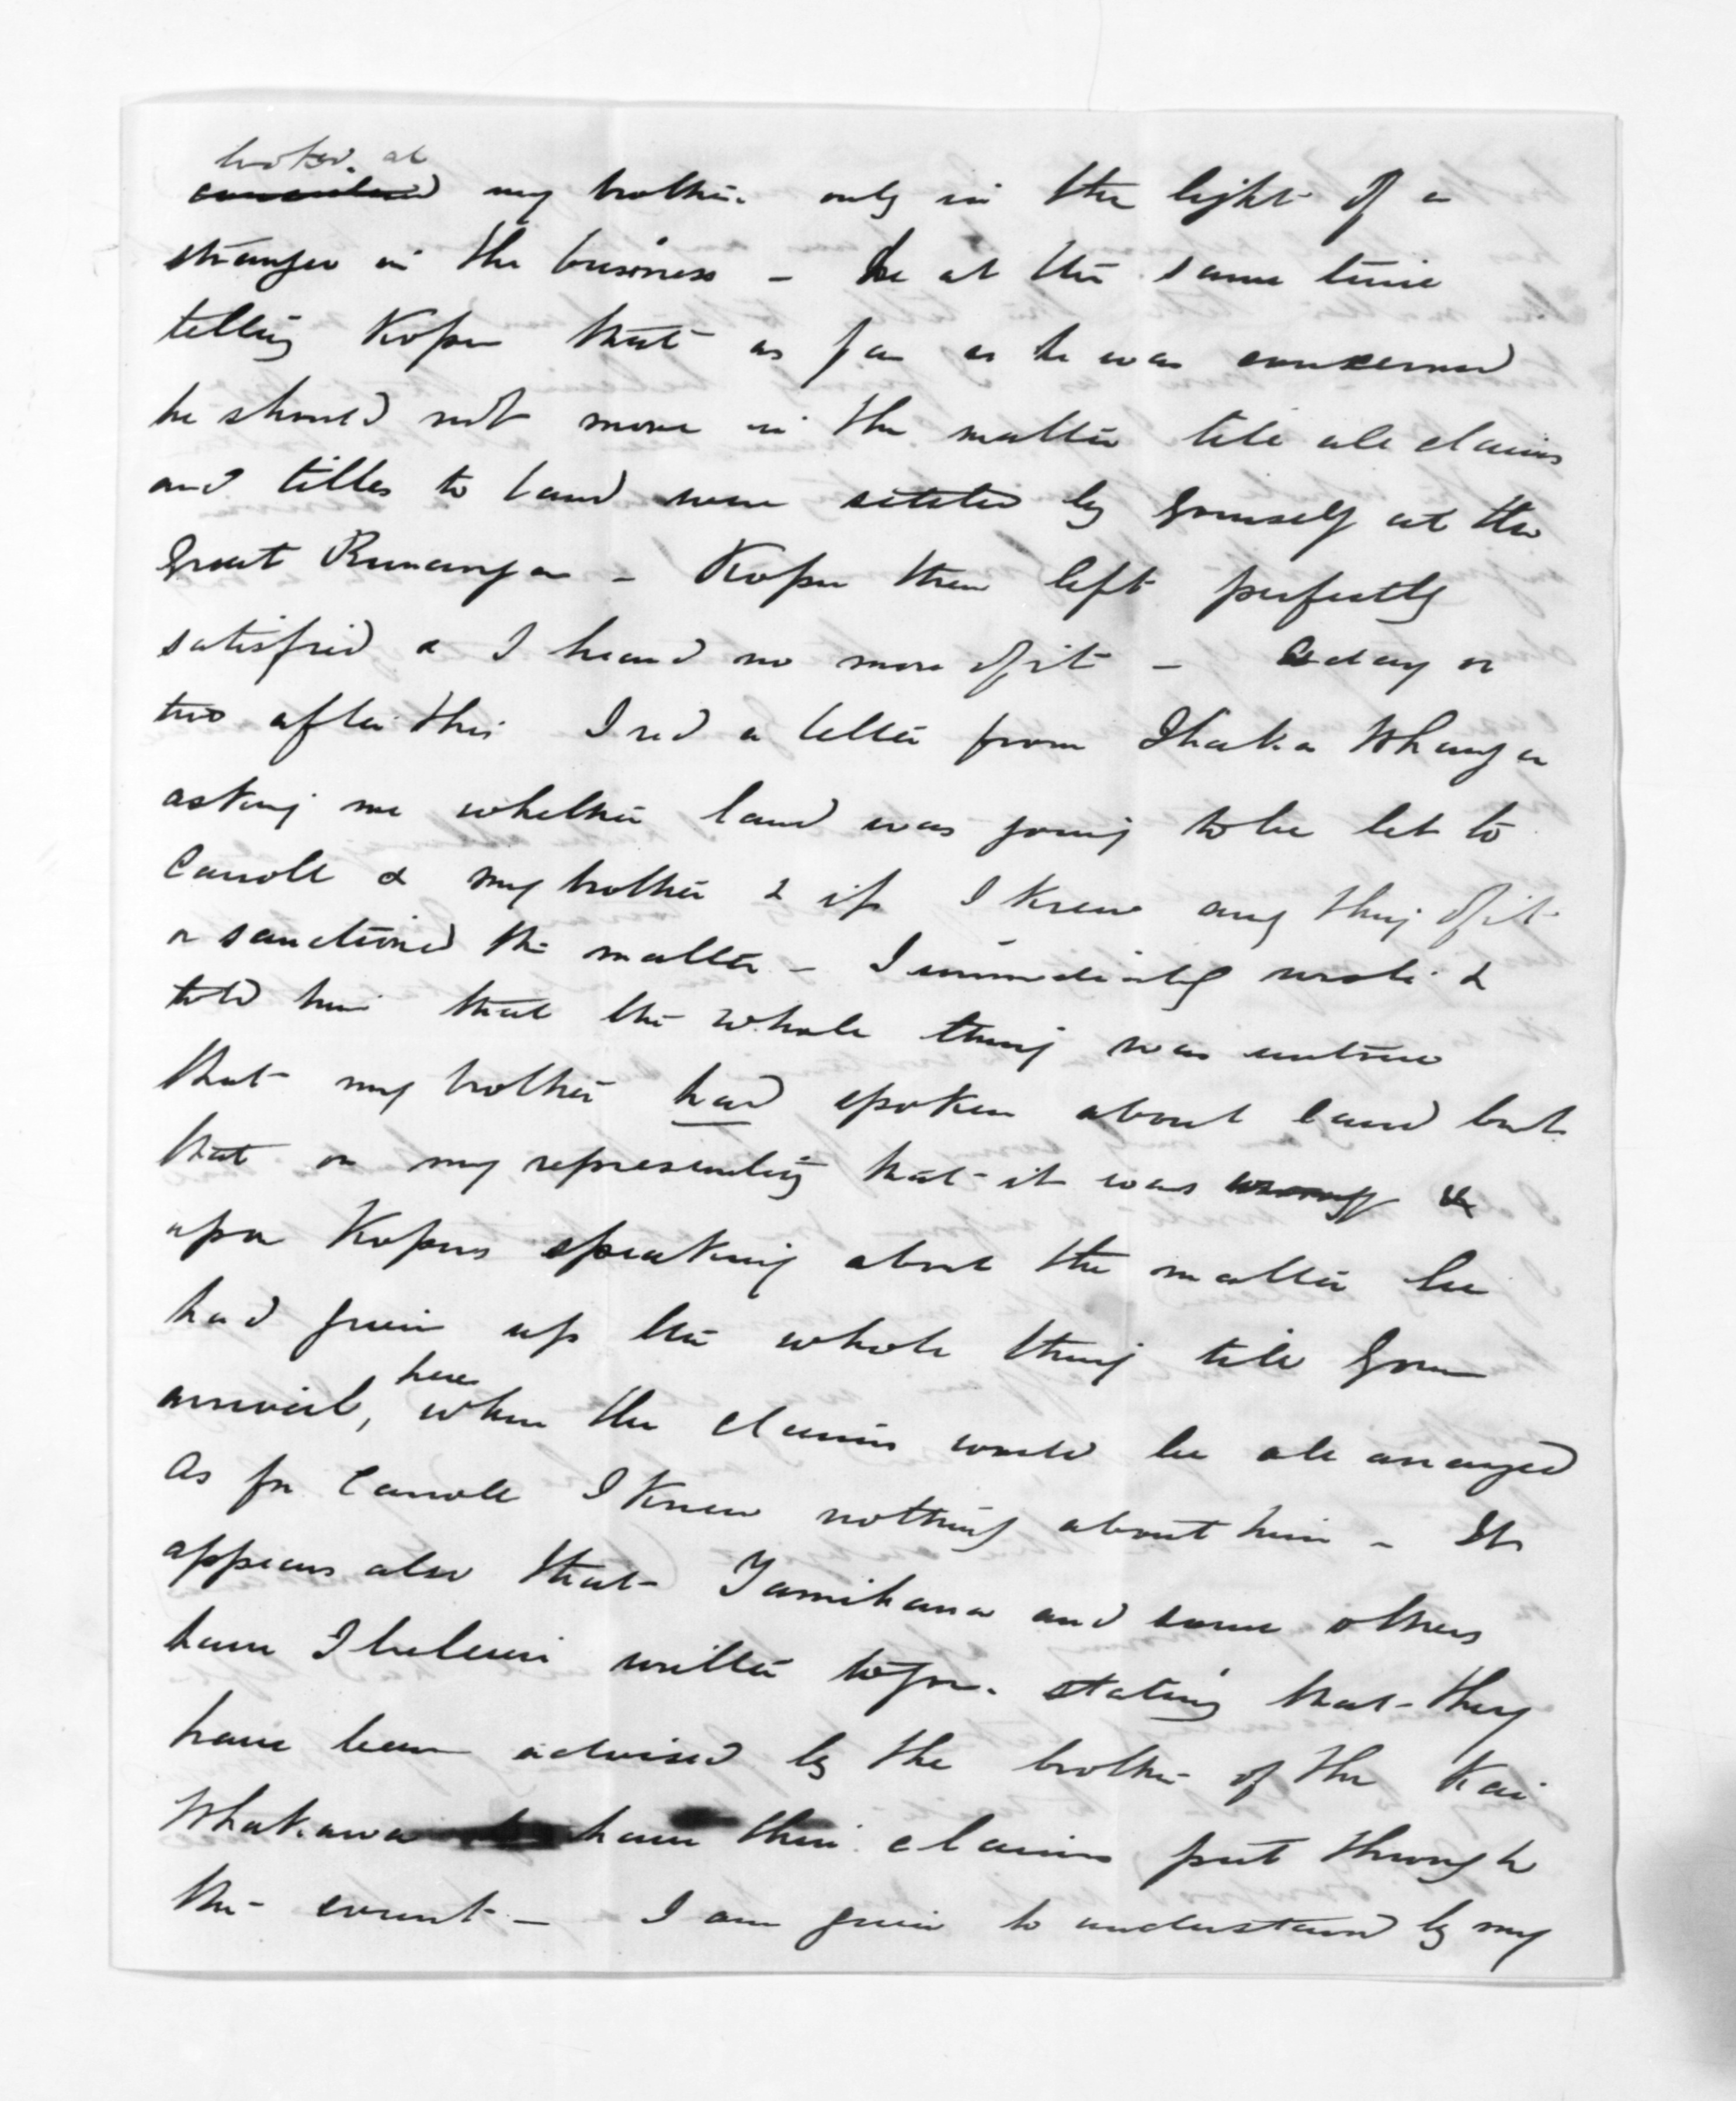 looked at
considered my brother only in the light of a
stranger in the business - he at the same time
telling Kopu that as far as he was concerned
he should not move in the matter till all claims
and titles to land were settled by yourself at the
Great Runanga - Kopu then left perfectly
satisfied & I heard no more of it - A day or
two after this I recd a letter from Ihaka Whanga
asking me whether land was going to be let to
Carroll & my brother & if I knew any thing of it
or sanctioned the matter - I immediately wrote &
told him that the whole thing was untrue
that my brother had spoken about land but
that on my representing that it was wrong &
upon Kopus speaking about the matter he
had given up the whole thing till your
arrival, here when the claims would be all arranged
As for Carroll I knew nothing about him - It
appears also that Tamihana and some others
have I believe written to you stating that they
have been advised by the brother of the Kai
Whakawa to have their claims put through
the court - I am given to understand by my